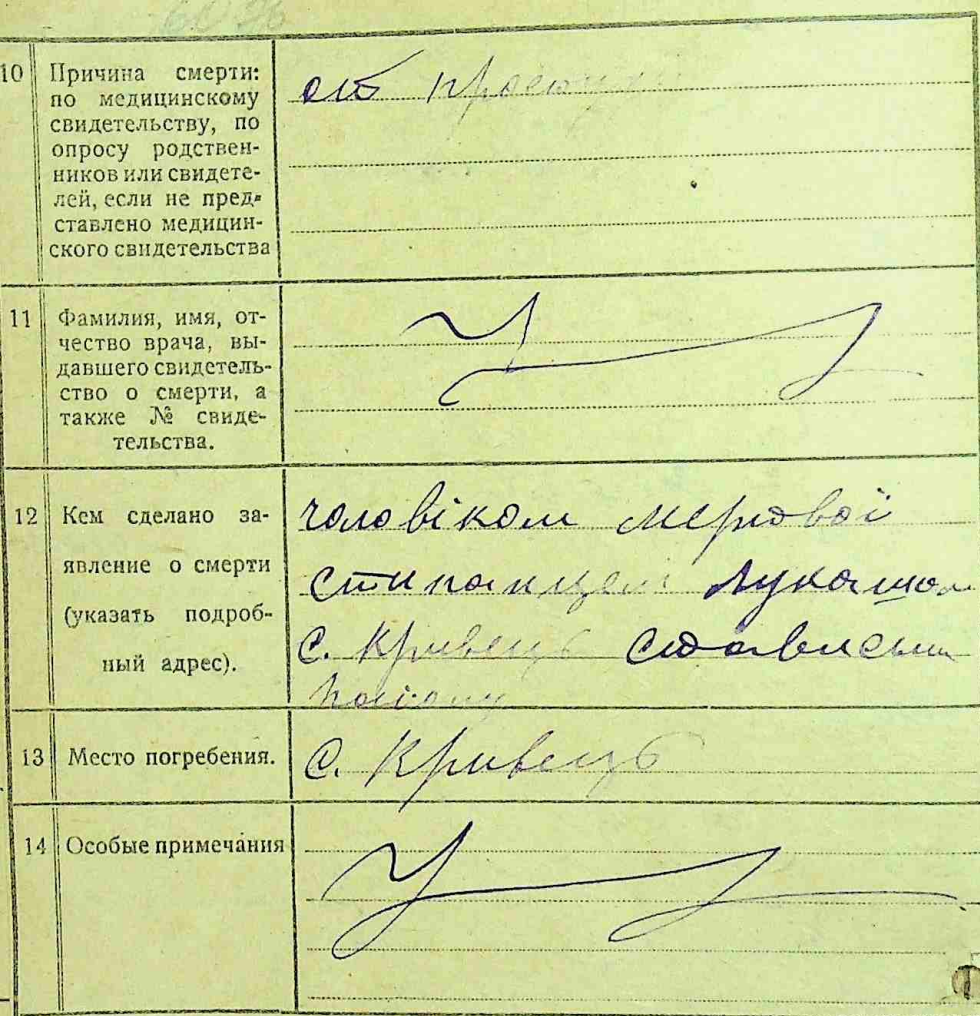 10 Причина смерти:
по медицинскому
свидетельству, по
опросу родствен-
ников или свидете-
лей, если не пред-
ставлено медицин-
ского свидетельства
от
11 Фамилия, имя, от-
чество врача, вы-
давшего свидетель-
ство о смерти, а
также № свиде-
тельства.
12 Кем сделано за-
явление о смерти
(указать подроб-
ный адрес).
чоловіком мертвої
Лукашом
с. Кривець
13 Место погребения.
с. Кривець
14 Особые примечания